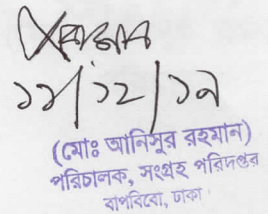 ১১/১২/১৯
(মোঃ আনিসুর রহমান)
পরিচালক, সংগ্রহ পরিদপ্তর
বাপবিবো, ঢাকা